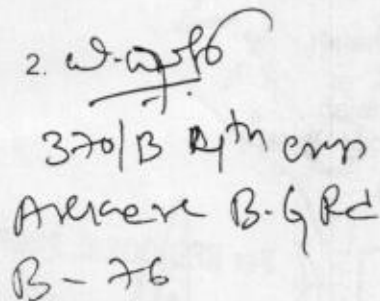 2.
370/B 4th cross
Arekere B.G Rd
B - 76